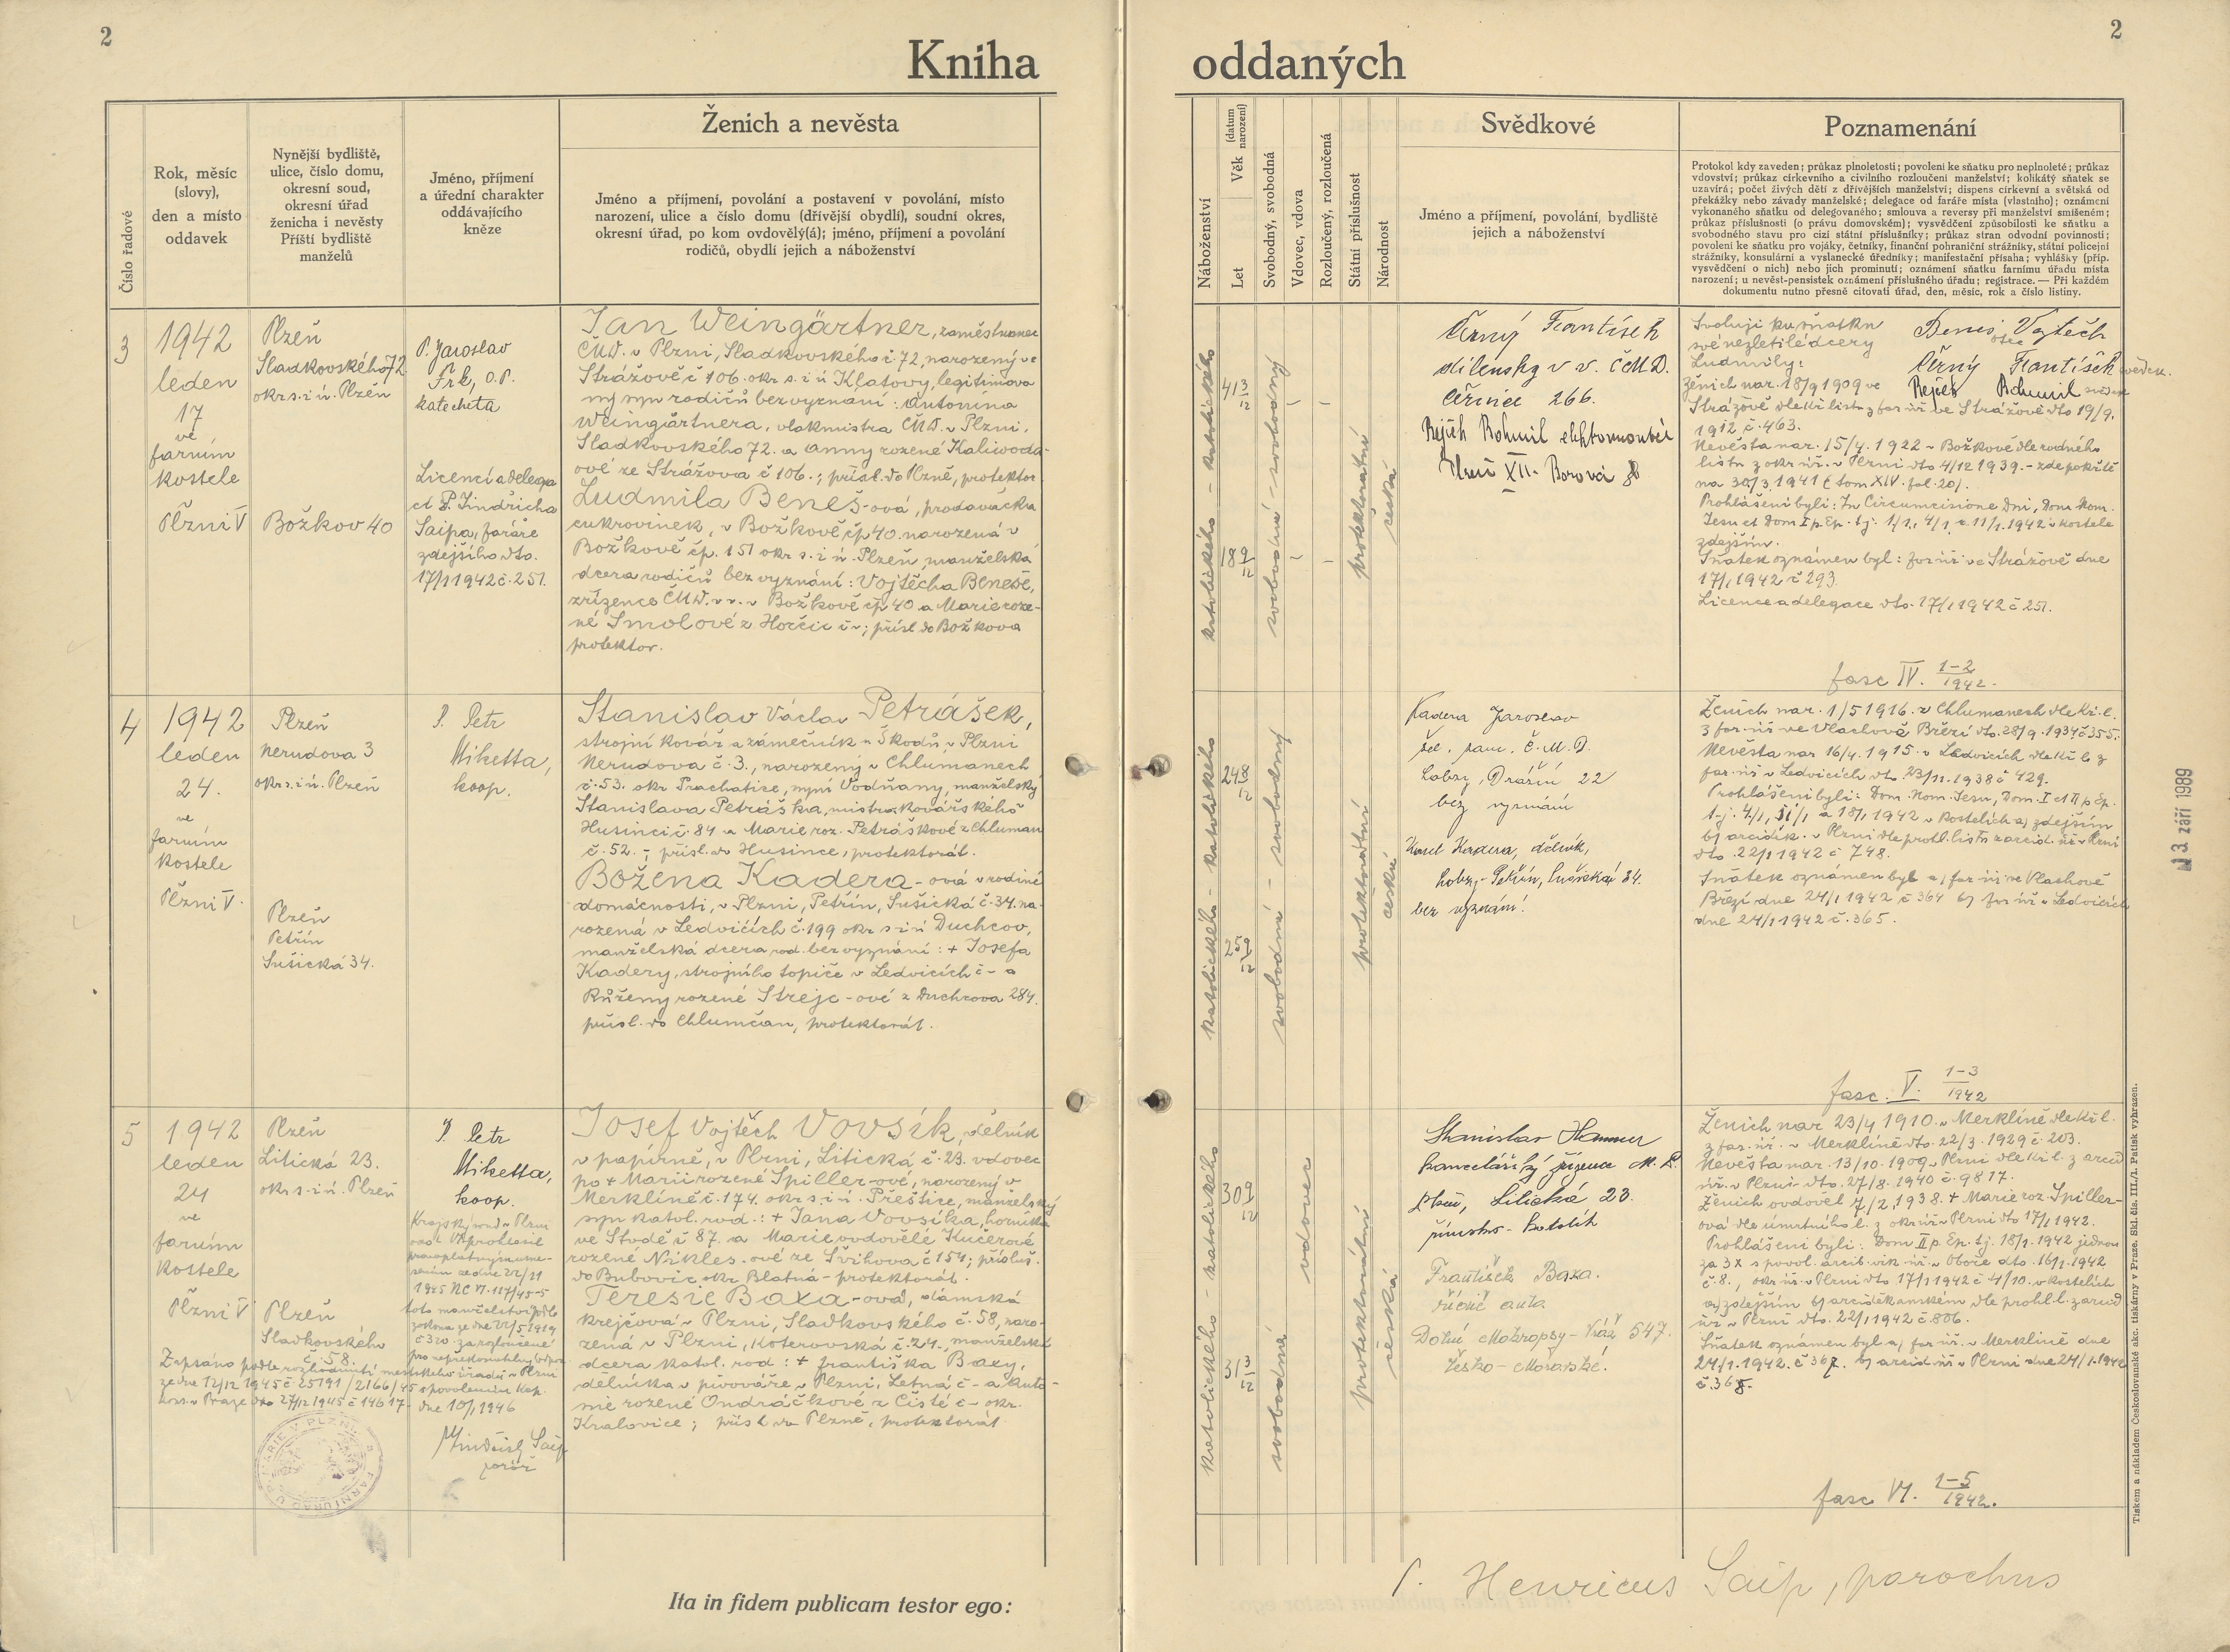 2
2
Kniha oddaných
Číslo řadové
Rok, měsíc
(slovy),
den a místo
oddavek
Nynější bydliště,
ulice, číslo domu,
okresní soud,
okresní úřad
ženicha i nevěsty
Příští bydliště
manželů
Jméno, příjmení
a úřední charakter
oddávajícího
kněze
Ženich a nevěsta
Jméno a příjmení, povolání a postavení v povolání, místo
narození, ulice a číslo domu (dřívější obydlí), soudní okres,
okresní úřad, po kom ovdovělý(á); jméno, příjmení a povolání
rodičů, obydlí jejich a náboženství
Náboženství
Věk (datum narození)
Let
Svobodný, svobodná
Vdovec, vdova
Rozloučený, rozloučená
Státní příslušnost
Národnost
Svědkové
Jméno a příjmení, povolání, bydliště
jejich a náboženství
Poznamenání
Protokol kdy zaveden; průkaz plnoletosti; povolení ke sňatku pro neplnoleté; průkaz
vdovství; průkaz církevního a civilního rozloučení manželství; kolikátý sňatek se
uzavírá; počet živých dětí z dřívějších manželství; dispens církevní a světská od
překážky nebo závady manželské; delegace od faráře místa (vlastního); oznámení
vykonaného sňatku od delegovaného; smlouva a reversy při manželství smíšeném;
průkaz příslušnosti (o právu domovském); vysvědčení způsobilosti ke sňatku a
svobodného stavu pro cizí státní příslušníky; průkaz stran odvodní povinnosti;
povolení ke sňatku pro vojáky, četníky, finanční pohraniční strážníky, státní policejní
strážníky, konsulární a vyslanecké úředníky; manifestační přísaha; vyhlášky (příp.
vysvědčení o nich) nebo jich prominutí; oznámení sňatku farnímu úřadu místa
narození; u nevěst-pensistek oznámení příslušného úřadu; registrace. — Při každém
dokumentu nutno přesně citovati úřad, den, měsíc, rok a číslo listiny.
3
1942
leden
17
ve
farním
kostele
Plzni V
Plzeň
Sladkovského 72
okr. s. i ú. Plzeň
Božkov 40
P. Jaroslav
Frk, O.P.
katecheta
Licencí a delega
cí P. Jindřicha
Saipa, faráře
zdejšího dto.
17/1 1942 č. 251.
Jan Weingärtner, zaměstnanec
ČMD. v Plzni, Sladkovského č 72, narozený ve
Strážově č 106. okr s. i ú Klatovy, legitimova
ný syn rodičů bez vyznání: Antonína
Weingärtnera, vlakmistra ČMD. v Plzni,
Sladkovského 72. a Anny rozené Kaliwoda-
ové ze Strážova č 106.; přísl. do Plzně, protektor
Ludmila Beneš-ová, prodavačka
cukrovinek, v Božkově čp 40. narozená v
Božkově čp. 151 okr s. i ú. Plzeň, manželská
dcera rodičů bez vyznání: Vojtěcha Beneše,
zřízence ČMD. v v. v Božkově čp 40 a Marie roze-
né Smolové z Horčic č -; přísl do Božkova
protektor.
katolického - katolického
41 3/12
18 9/12
svobodná - svobodný
protektorátní
česká
Černý František
dílenský v v. ČMD.
266.
Rejček Bohumil
Plzeň XII.
Svoluji ku sňatku
své nezletilé dcery
Ludmily:
Beneš Vojtěch
otec
Černý František svědek.
Bohumil svědek
Ženich nar. 18/9 1909 ve
Strážově dle kř listu z far úř ve Strážově dto 19/9.
1912 č. 463.
Nevěsta nar. 15/4. 1922 v Božkově dle rodného
listu z okr úř. v Plzni dto 4/12 1939. - zde pokřtě
na 30/3 1941 č tom XIV. fol. 201.
Prohlášeni byli: In Circumcisione Dni, Dom. Nom.
Jesu et Dom I p. Ep. tj. 1/1., 4/1., a 11/1. 1942 v kostele
zdejším.
Sňatek oznámen byl: far úř ve Strážově dne
17/1 1942 č 293
Licence a delegace dto. 17/1 1942 č. 251.
fasc IV. 1-2/1942.
4
1942
leden
24.
ve
farním
kostele
Plzni V.
Plzeň
Nerudova 3
okr. s. i ú. Plzeň
Plzeň
Petřín
Sušická 34.
P. Petr
Miketta,
koop.
Stanislav Václav Petrášek,
strojní kovář a zámečník u Škodů, v Plzni
Nerudova č. 3., narozený v Chlumanech
č. 53. okr Prachatice, nyní Vodňany, manželský
Stanislava Petráška, mistra kovářského
Husinci č. 84 a Marie roz. Petráškové z Chluman
č. 52. -; přísl. do Husince, protektorát.
Božena Kadera-ová v rodině
domácnosti, v Plzni, Petřín, Sušická č. 34. na-
rozená v Ledvicích č. 199 okr s i ú Duchcov,
manželská dcera rod. bez vyznání: + Josefa
Kadery, strojního topiče v Ledvicích č - a
Růženy rozené Strejc-ové z Duchcova 284.
přísl. do Chlumčan, protektorát.
katolického - katolického
24 8/12
25 9/12
svobodná - svobodný
protektorátní
česká
Kadera Jaroslav
Č. M. D.
Lobzy, 22
bez vyznání
Karel Kadera, dělník,
Lobzy - Petřín, Sušická 34.
bez vyznání.
Ženich nar. 1/5 1916. v Chlumanech dle kř. l.
z far. úř ve Vlachově Březí dto. 28/9. 1934 č 355.
Nevěsta nar 16/4. 1915. v Ledvicích dle kř l. z
far. úř v Ledvicích dto 23/11. 1938 č 429.
Prohlášeni byli: Dom. Nom. Jesu, Dom. I et II p. Ep.
t. j. 4/1, 11/1 a 18/1 1942 v kostelích a) zdejším
b) arciděk. v Plzni dle prohl. listu z arciď. úř v Plzni
dto. 22/1 1942 č 748.
Sňatek oznámen byl a) far úř ve Vlachově
Březí dne 24/1 1942 č 364 b) far úř v Ledvicích
dne 24/1 1942 č. 365.
fasc. V. 1-3/1942
5
1942
leden
24
ve
farním
kostele
Plzni V
Plzeň
Litická 23.
okr s. i ú. Plzeň
Plzeň
Sladkovského
č. 58.
P. Petr
Miketta,
koop.
Krajský soud v Plzni
prohlásil
1945
toto manželství podle
zákona ze dne 22/5 1919
č 320 za rozloučené
Zapsáno podle rozhodnutí městského úřadu v Plzni
ze dne 12/12 1945 č 25191/2166/45 s povolením kap.
kons. v Praze dto 27/12 1945 č 14617 dne 10/1 1946
Jindřich Saip
farář
Josef Vojtěch Vovsík, dělník
v papírně, v Plzni, Litická č. 23. vdovec
po + Marii rozené Spiller-ové, narozený v
Merklíně č. 174. okr s. i ú. Přeštice, manželský
syn katol. rod.: + Jana Vovsíka, horníka
ve Stodě č 87. a Marie ovdovělé Kučerové
rozené Nikles-ové ze Švihova č 154; přísluš.
do Bubovic okr Blatná - protektorát.
Terezie Baxa-ová, dámská
krejčová v Plzni, Sladkovského č. 58, naro-
zená v Plzni, Koterovská č. 24., manželská
dcera katol. rod: + Františka Baxy,
dělníka v pivováře v Plzni, Letná č - a Anto-
nie rozené Ondráčkové z Čisté č - okr.
Kralovice; přísl. do Plzně, protektorát
katolického - katolického
30 9/12
31 3/12
svobodná
vdovec
protektorátní
česká
Stanislav Hammer
kancelářský zřízenec
Plzeň, Litická 23.
římsko-katolík
František Baxa.
řidič auta
Dolní Mokropsy - Vráž 547.
Česko-Moravské.
Ženich nar 23/4 1910. v Merklíně dle kř l.
z far. úř. v Merklíně dto. 22/3. 1929 č. 203.
Nevěsta nar. 13/10. 1909. v Plzni dle kř l. z arcid
úř. v Plzni dto. 27/8. 1940 č. 9817.
Ženich ovdověl 7/2. 1938. + Marie roz. Spiller-
ová dle úmrtního l. z okr úř v Plzni dto 17/1 1942.
Prohlášeni byli: Dom II p. Ep. tj. 18/1. 1942 jednou
za 3x s povol. arcib. vik. úř. v Oboře dto. 16/1. 1942
č. 8., okr úř. v Plzni dto 17/1 1942 č 4/10. v kostelích
a) zdejším b) arciděkanském dle prohl. l. z arcid
úř v Plzni dto. 22/1 1942 č. 806.
Sňatek oznámen byl a) far úř. v Merklíně dne
24/1. 1942. č 367. b) arcid úř v Plzni dne 24/1. 1942
č. 368.
fasc VI. 1-5/1942.
13. září 1989
Tiskem a nákladem Českoslovanské akc. tiskárny v Praze. Skl. čís. III./1. Patisk vyhrazen.
Ita in fidem publicam testor ego:
P. Henricus Saip, parochus